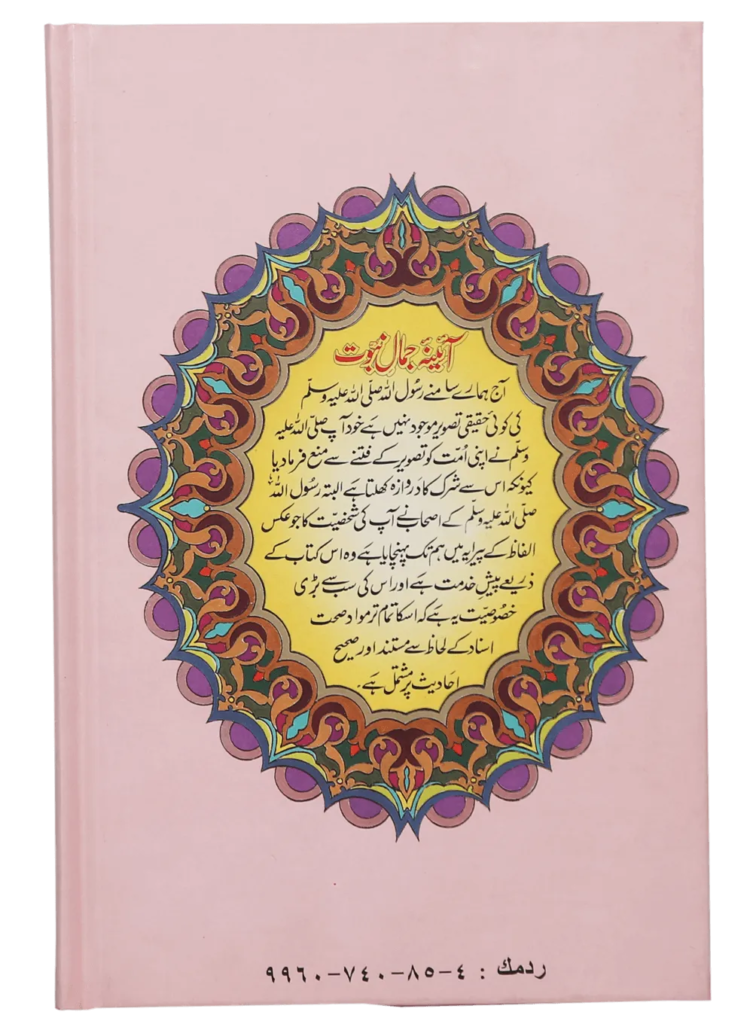 آئینۂ جمال نبوت
آج ہمارے سامنے رسُول اللہ صلّی اللہ علیہ وسلّم
کی کوئی حقیقی تصویر موجود نہیں ہے خود آپ صلّی اللہ علیہ
وسلّم نے اپنی اُمّت کو تصویر کے فتنے سے منع فرما دیا
کیونکہ اس سے شرک کا دروازہ کھلتا ہے البتہ رسُول اللہ
صلّی اللہ علیہ وسلّم کے اصحاب نے آپ کی شخصیّت کا جو عکس
الفاظ کے پیرایہ میں ہم تک پہنچایا ہے وہ اس کتاب کے
ذریعے پیشِ خدمت ہے اور اس کی سب سے بڑی
خصُوصیّت یہ ہے کہ اسکا تمام تر مواد صحت
اسناد کے لحاظ سے مستند اور صحیح
احادیث پر مشتمل ہے۔
ردمك : ٤-٨٥-٧٤٠-٩٩٦٠